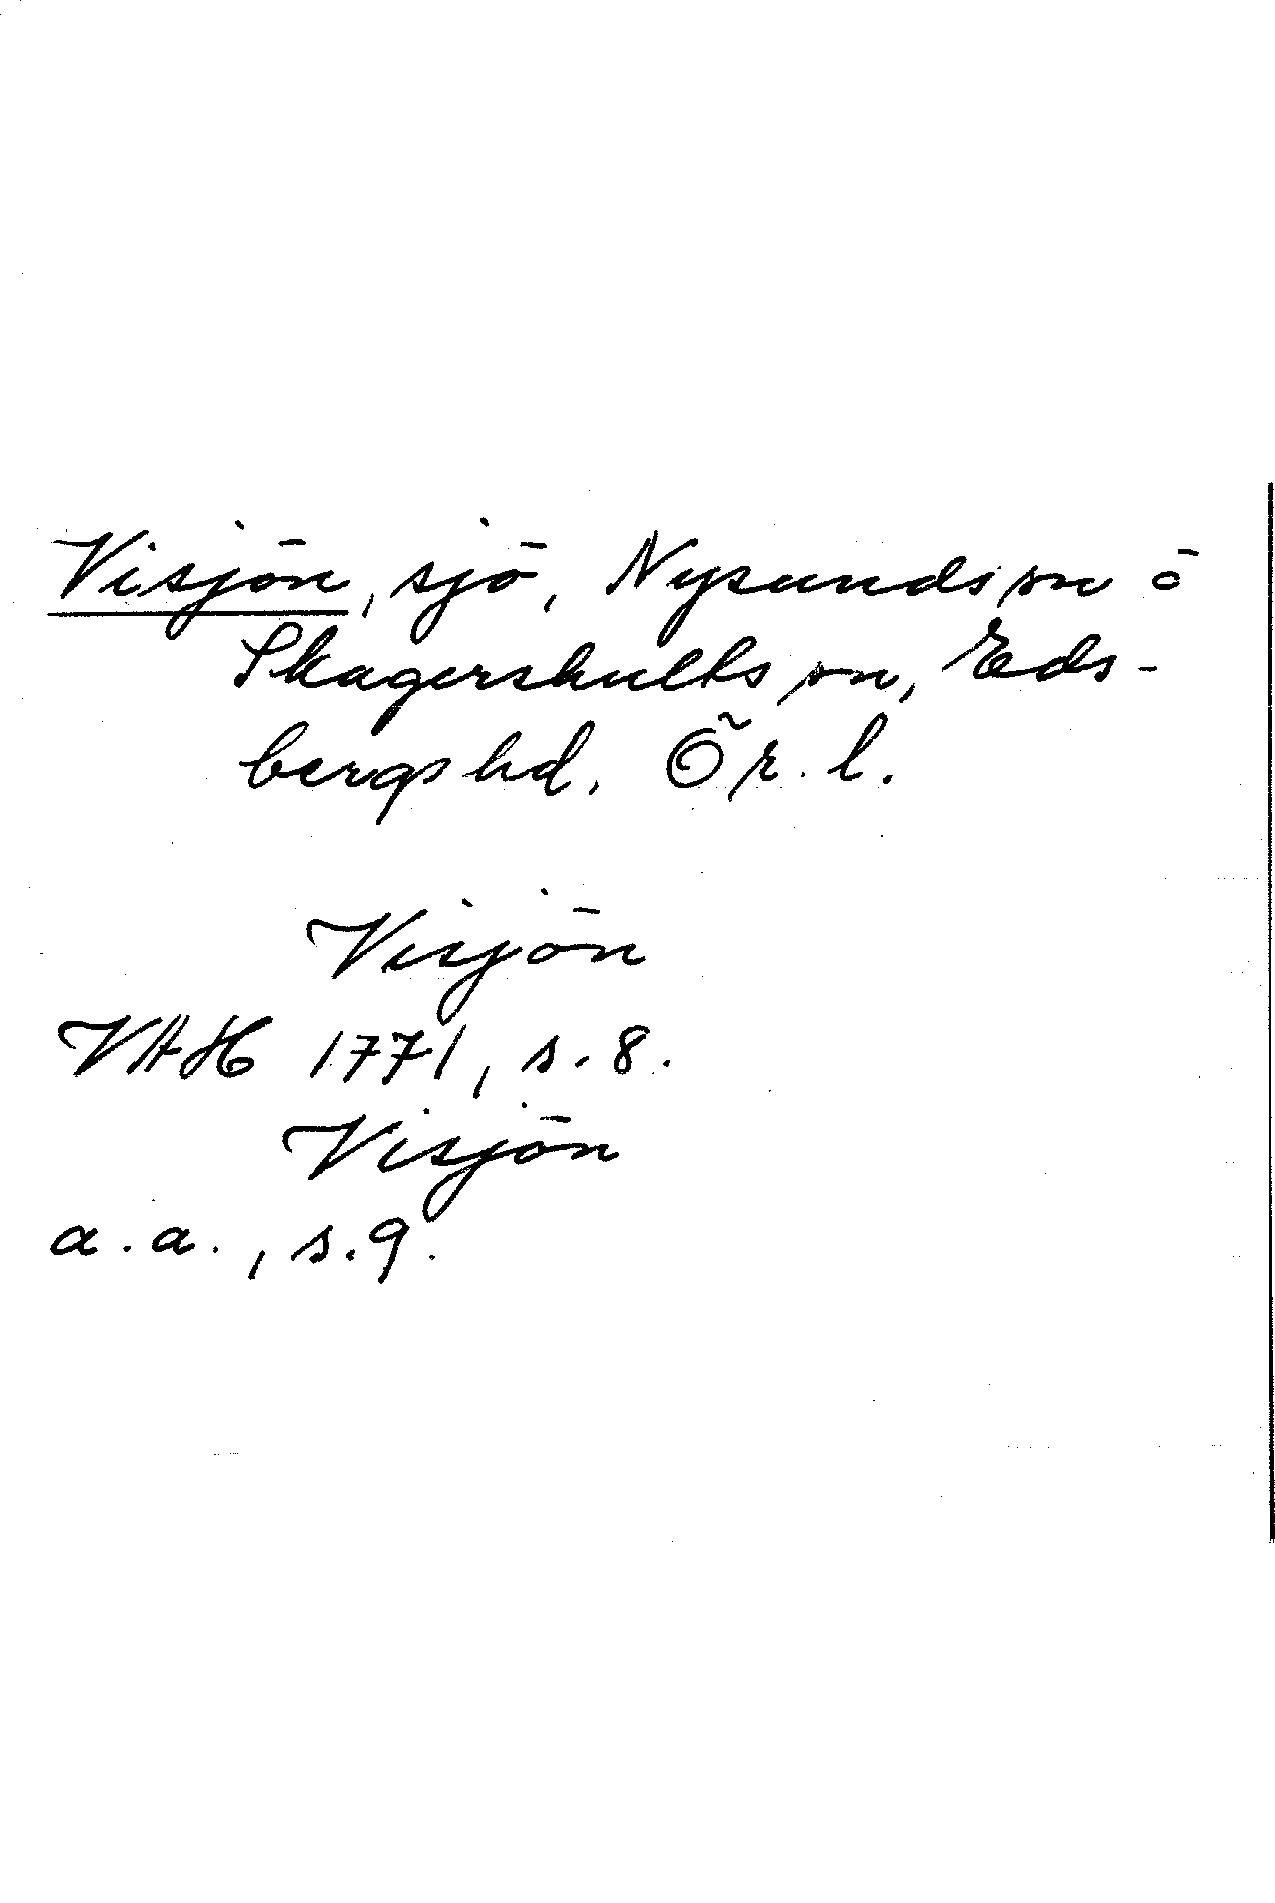 Visjön, sjö, Nysunds sn o
Skagershults sn, Eds-
bergs hd, Ör. l.
Visjön
VAH 1771, s. 8.
Visjön
a. a., s. 9.